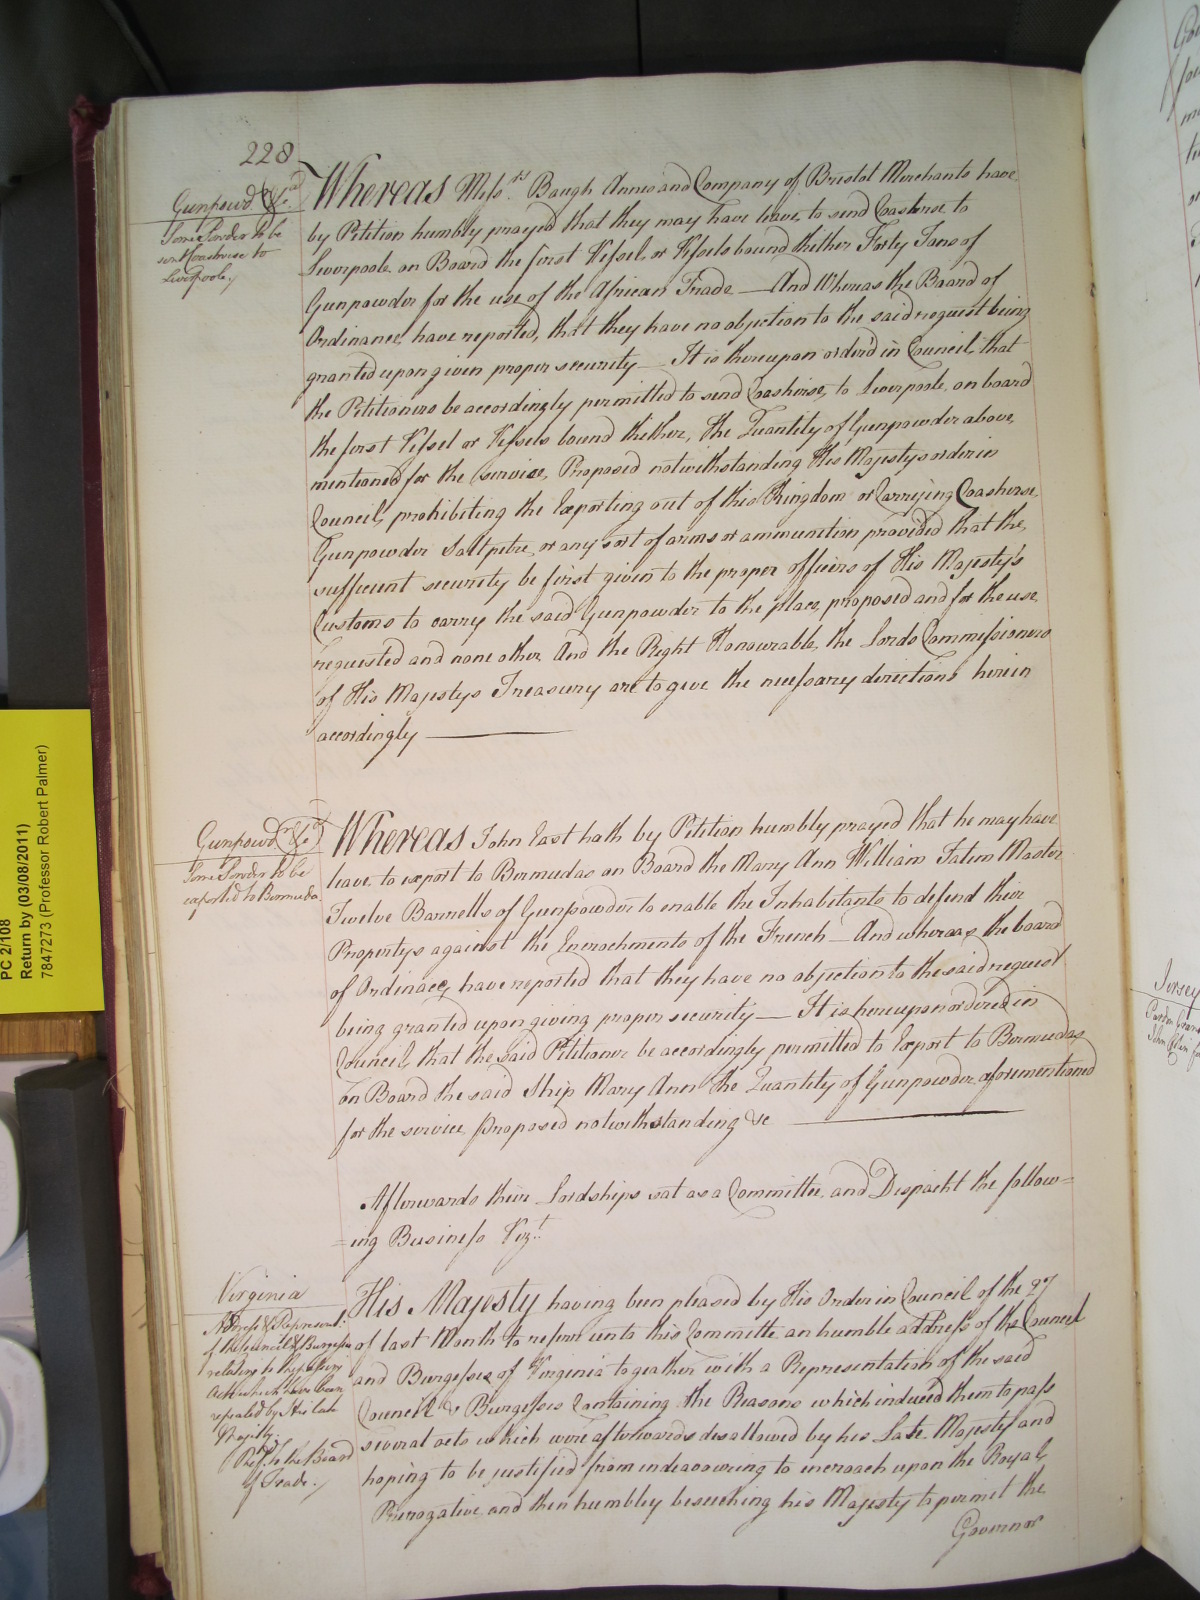 228
Gunpowd.r &c.a
Some Powder to be
sent Coastwise to
Liverpoole.
Whereas Messrs. Baugh Ames and Company of Bristol Merchants have
by Petition humbly prayed that they may have leave to send Coastwise to
Liverpoole on Board the first Vessel or Vessels bound thither Forty Tons of
Gunpowder for the use of the African Trade — And Whereas the Board of
Ordinance have reported, that they have no objection to the said request being
granted upon given proper security — It is thereupon orderd in Council, that
the Petitioners be accordingly permitted to send Coastwise to Liverpoole on board
the first Vessel or Vessels bound thither, the Quantity of Gunpowder above
mentioned for the service Proposed notwithstanding His Majestys order in
Council, prohibiting the Exporting out of this Kingdom or Carrying Coastwise
Gunpowder Saltpetre or any sort of arms or ammunition provided that the
sufficient security be first given to the proper officers of His Majesty's
Customs to carry the said Gunpowder to the place proposed and for the use
requested and none other And the Right Honourable the Lords Commissioners
of His Majestys Treasury are to give the necessary directions herein
accordingly
Gunpowd.r &c.a
Some Powder to be
exported to Bermuda
Whereas John East hath by Petition humbly prayed that he may have
leave to export to Bermudas on Board the Mary Ann William Tatem Master
Twelve Barrells of Gunpowder to enable the Inhabitants to defend their
Propertys against the Encrochments of the French — And whereas the board
of Ordinace have reported that they have no objection to the said request
being granted upon giving proper security — It is hereupon ordered in
Council, that the said Petitioner be accordingly permitted to Export to Bermudas
on Board the said Ship Mary Ann the Quantity of Gunpowder aforementioned
for the service proposed notwithstanding &c
Afterwards their Lordships sat as a Committee and Despacht the follow=
=ing Business Vizt.
Virginia
Address & Represent:
of the Council & Burgesses
relating to the passing
Acts which have been
repealed by His late
Majesty.
Ref.d to the Board
of Trade.
His Majesty having been pleased by His Order in Council of the 27
of last Month to referr unto this Committe an humble address of the Council
and Burgesses of Virginia togeather with a Representation of the said
Council & Burgesses Containing the Reasons which induced them to pass
several acts which were afterwards disallowed by his Late Majesty and
hoping to be justified from indeavouring to incroach upon the Royal
Prerogative and then humbley beseeching his Majesty to permit the
Governor
PC 2/108
Return by (03/08/2011)
7847273 (Professor Robert Palmer)
Jersey